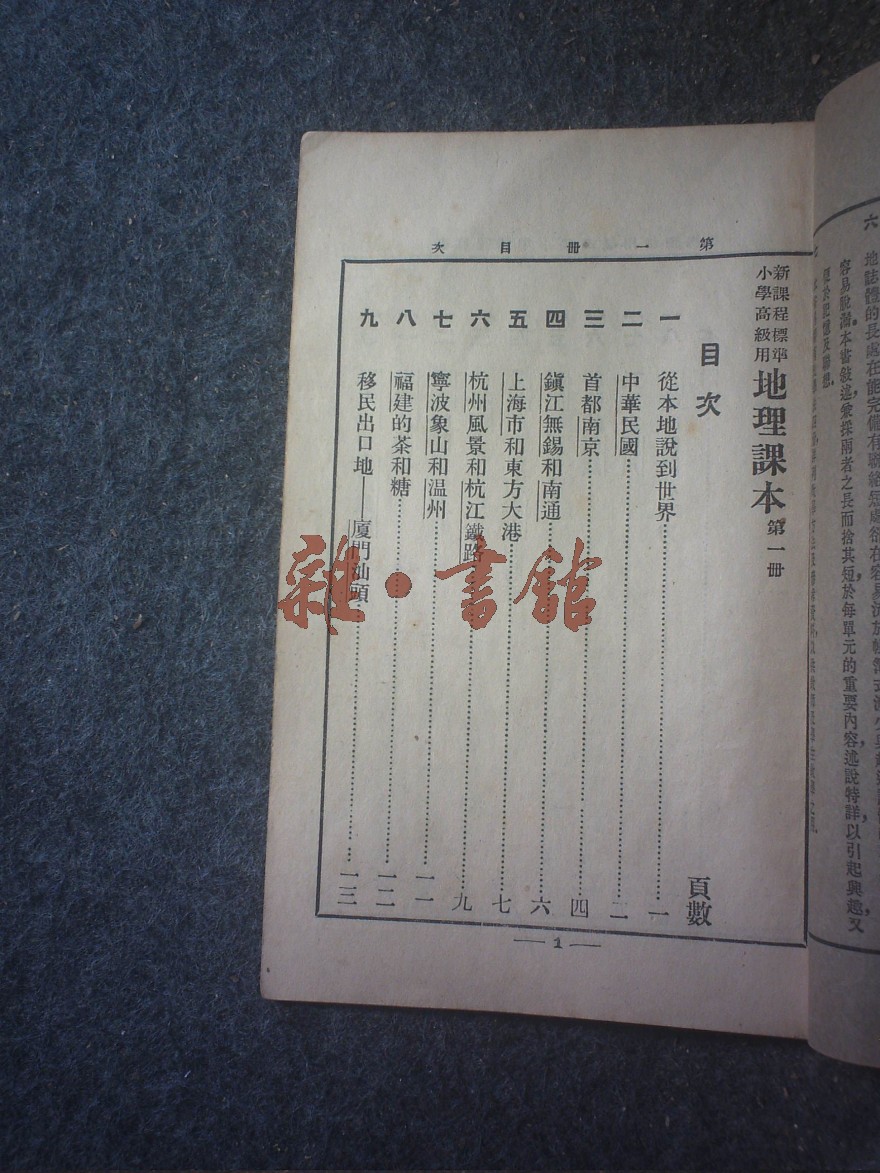 第一冊目次
新課程標準
小學高級用
地理課本 第一冊
目次
頁數
一 從本地說到世界……一
二 中華民國……二
三 首都南京……四
四 鎮江無錫和南通……六
五 上海市和東方大港……七
六 杭州風景和杭江鐵路……九
七 寧波象山和温州……一一
八 福建的茶和糖……一二
九 移民出口地——廈門汕頭……一三
— 1 —
雜·書館
六
地誌體的長處在能完備有聯絡
容易脫漏本書敍述兼採兩者之長而捨其短於每單元的重要內容述說特詳以引起興趣又
便於記憶及聯想